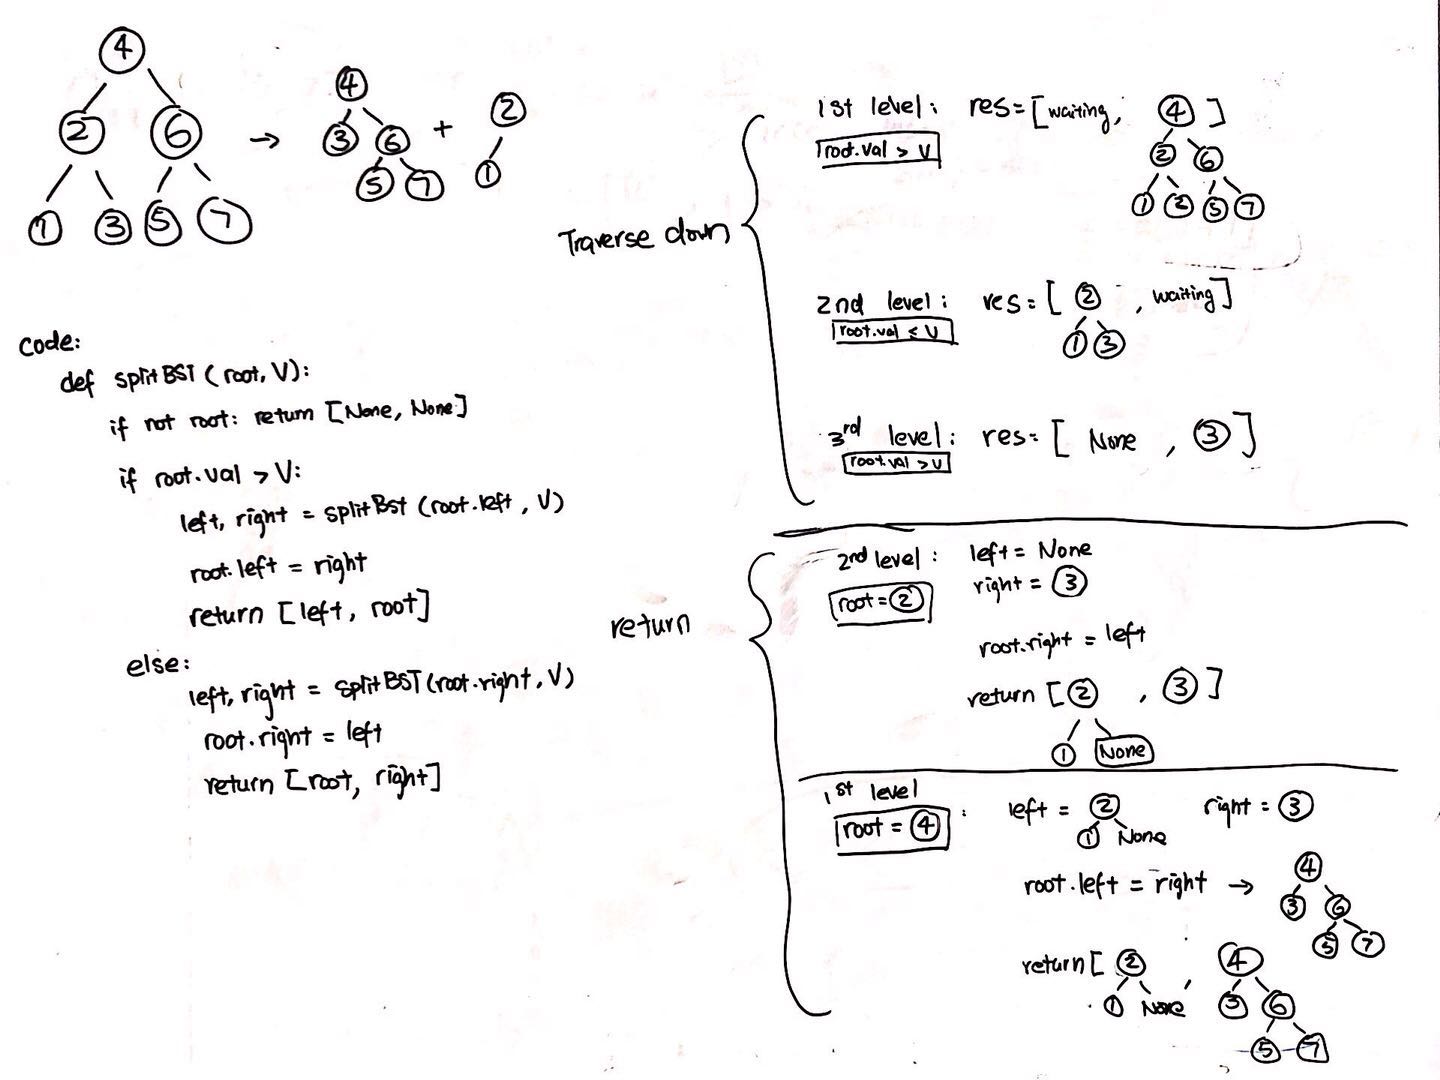 4
2 6
1 3 5 7
→
4
3 6
5 7
+
2
1
code:
def splitBST (root, V):
if not root: return [None, None]
if root.val > V:
left, right = splitBst (root.left, V)
root.left = right
return [left, root]
else:
left, right = splitBST (root.right, V)
root.right = left
return [root, right]
Traverse down
1st level: res=[waiting, 4 ]
root.val > V
2 6
1 3 5 7
2nd level: res=[ 2 , waiting]
root.val ≤ V
1 3
3rd level: res=[ None , 3 ]
root.val > V
return
2nd level: left = None
right = 3
root = 2
root.right = left
return [ 2 , 3 ]
1 None
1st level
root = 4 : left = 2 right = 3
1 None
root.left = right →
4
3 6
5 7
return [ 2 , 4
1 None 3 6
5 7